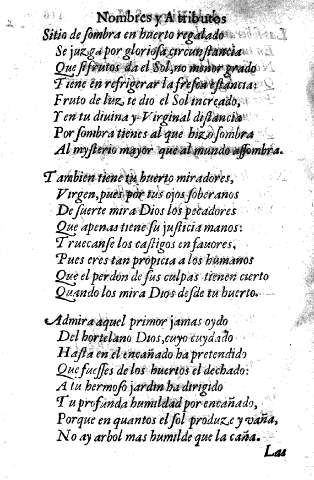 Nombres y Atributos
Sitio de sombra en huerto regalado
Se juzga por gloriosa circunstancia
Que si frutos da el Sol, no menor grado
Tiene en refrigerar la fresca estancia:
Fruto de luz te dio el Sol increado,
Y en tu diuina y Virginal distancia
Por sombra tienes al que hizo sombra
Al mysterio mayor que al mundo assombra.
Tambien tiene tu huerto miradores,
Virgen, pues por tus ojos soberanos
De suerte mira Dios los pecadores
Que apenas tiene su justicia manos:
Truecanse los castigos en fauores,
Pues eres tan propicia a los humanos
Que el perdon de sus culpas tienen cierto
Quando los mira Dios desde tu huerto.
Admira aquel primor jamas oydo
Del hortelano Dios, cuyo cuydado
Hasta en el encañado ha pretendido
Que fuesses de los huertos el dechado:
A tu hermoso jardin ha dirigido
Tu profunda humildad por encañado,
Porque en quantos el sol produze y vaña,
No ay arbol mas humilde que la caña.
Las